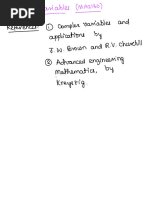 Variables (MA201)
References:- ① Complex variables and
applications by
J. W. Brown and R.V. Churchill
② Advanced engineering
mathematics, by
Kreyszig.